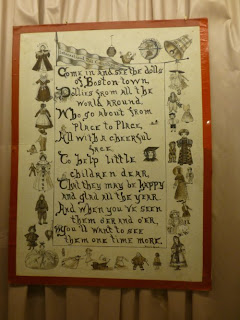 Come in and see the dolls
of Boston town,
Dollies from all the
world around.
Who go about from
Place to Place,
All with a cheerful
face.
To help little
children dear,
That they may be happy
and glad all the year.
And when you've seen
them o'er and o'er,
You'll want to see
them one time more.